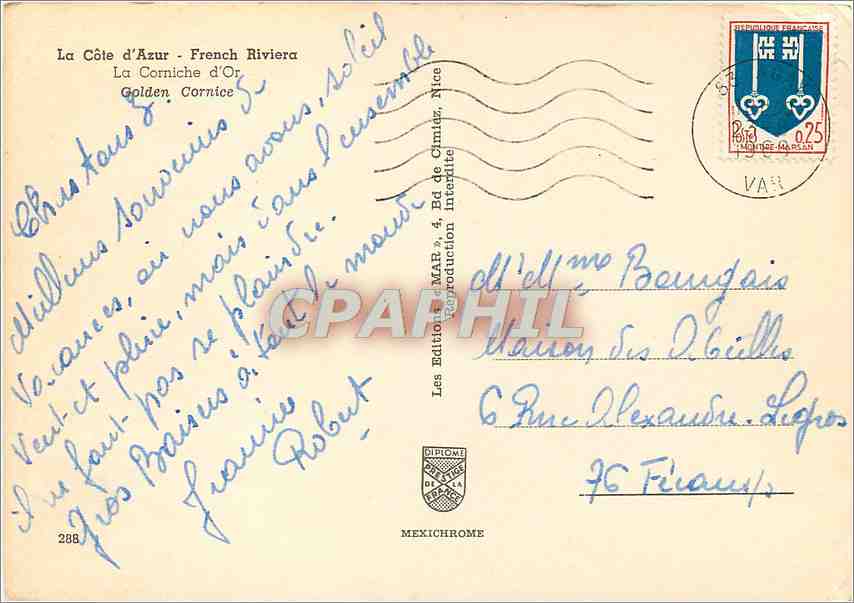 La Côte d'Azur - French Riviera
La Corniche d'Or
Golden Cornice
Meilleurs souvenirs de
Vacances, où nous avons, soleil
Vent et pluie, mais dans l'ensemble
il ne faut pas se plaindre.
Gros Baisers à tout le monde
Jeanine
Robert
288
Les Editions « MAR », 4, Bd de Cimiez, Nice
Reproduction interdite
DIPLOME
PRESTIGE
DE LA
FRANCE
MEXICHROME
REPUBLIQUE FRANÇAISE
POSTES
0,25
MONT-DE-MARSAN
83
VAR
Mr Mme Bourgais
Maison des Abeilles
6 Rue Alexandre Legros
76 Fécamp
CPAPHIL